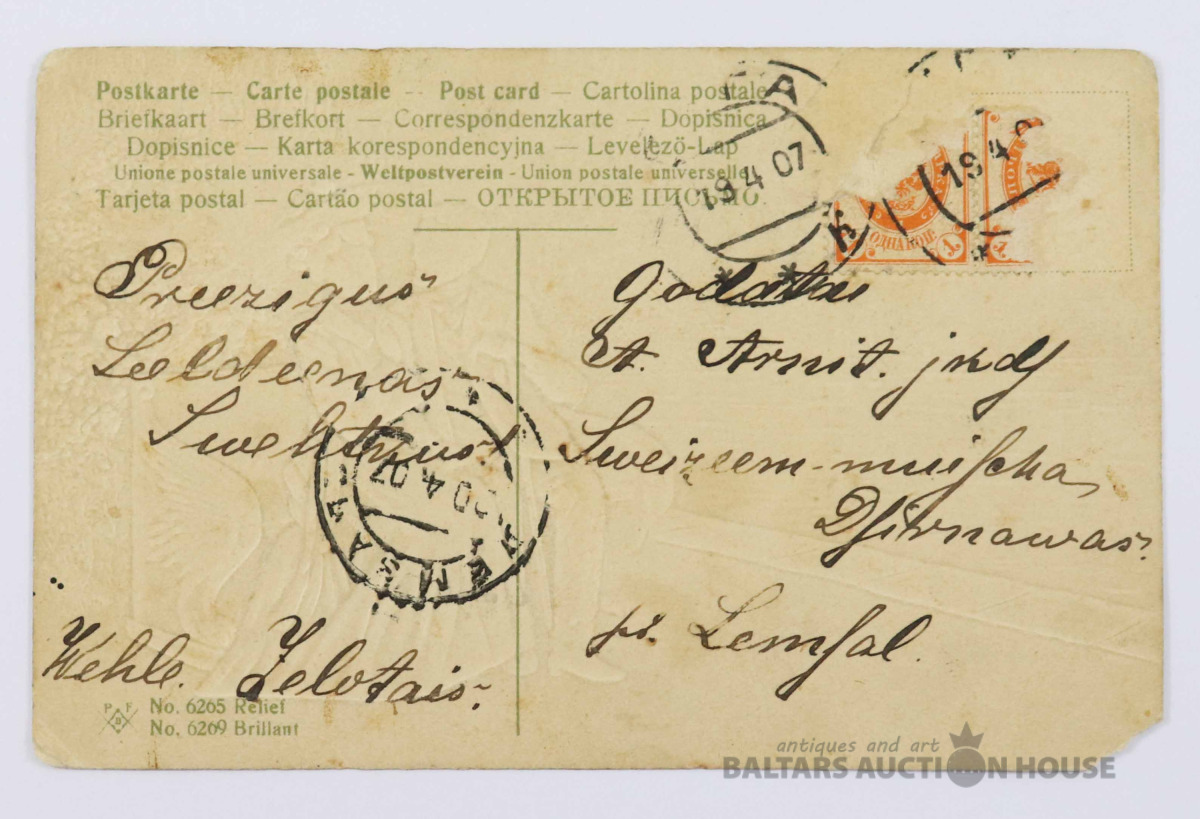 Postkarte — Carte postale -- Post card — Cartolina postale
Briefkaart — Brefkort — Correspondenzkarte — Dopisnica
Dopisnice — Karta korespondencyjna — Levelező-Lap
Unione postale universale - Weltpostverein - Union postale universelle
Tarjeta postal — Cartão postal — ОТКРЫТОЕ ПИСЬМО.
19 4 07
19 4
ОДНА КОП.
1
Preezigus
Leeldeenas
Swehtkus!
Wehle. Zelotais.
Godatai
A. Arnit. jkdf
Sweizeem-muischa
Dsirnawas.
pr. Lemsal.
20 4 07
P F B
No. 6265 Relief
No. 6269 Brillant
antiques and art
BALTARS AUCTION HOUSE